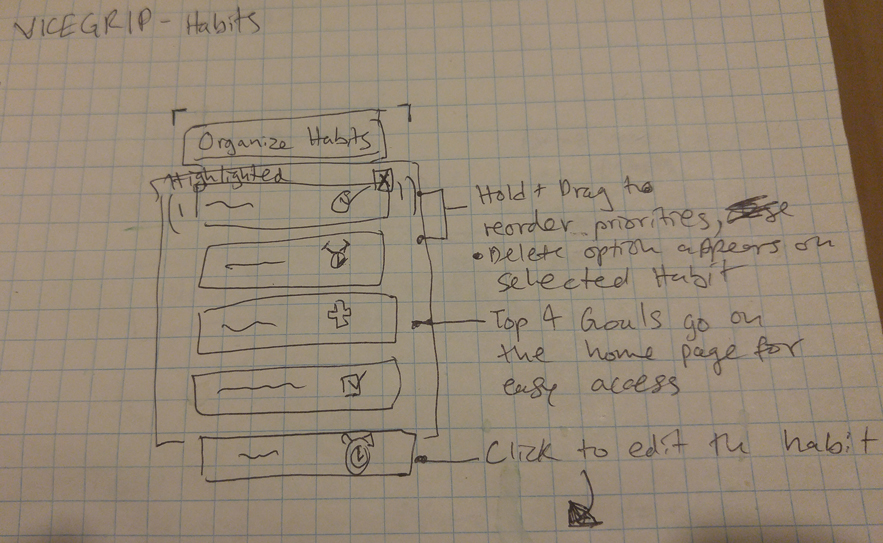 VICEGRIP - Habits
Organize Habits
Highlighted
Hold + Drag to
reorder priorities,
• Delete option appears on
selected Habit
Top 4 Goals go on
the home page for
easy access
Click to edit the habit